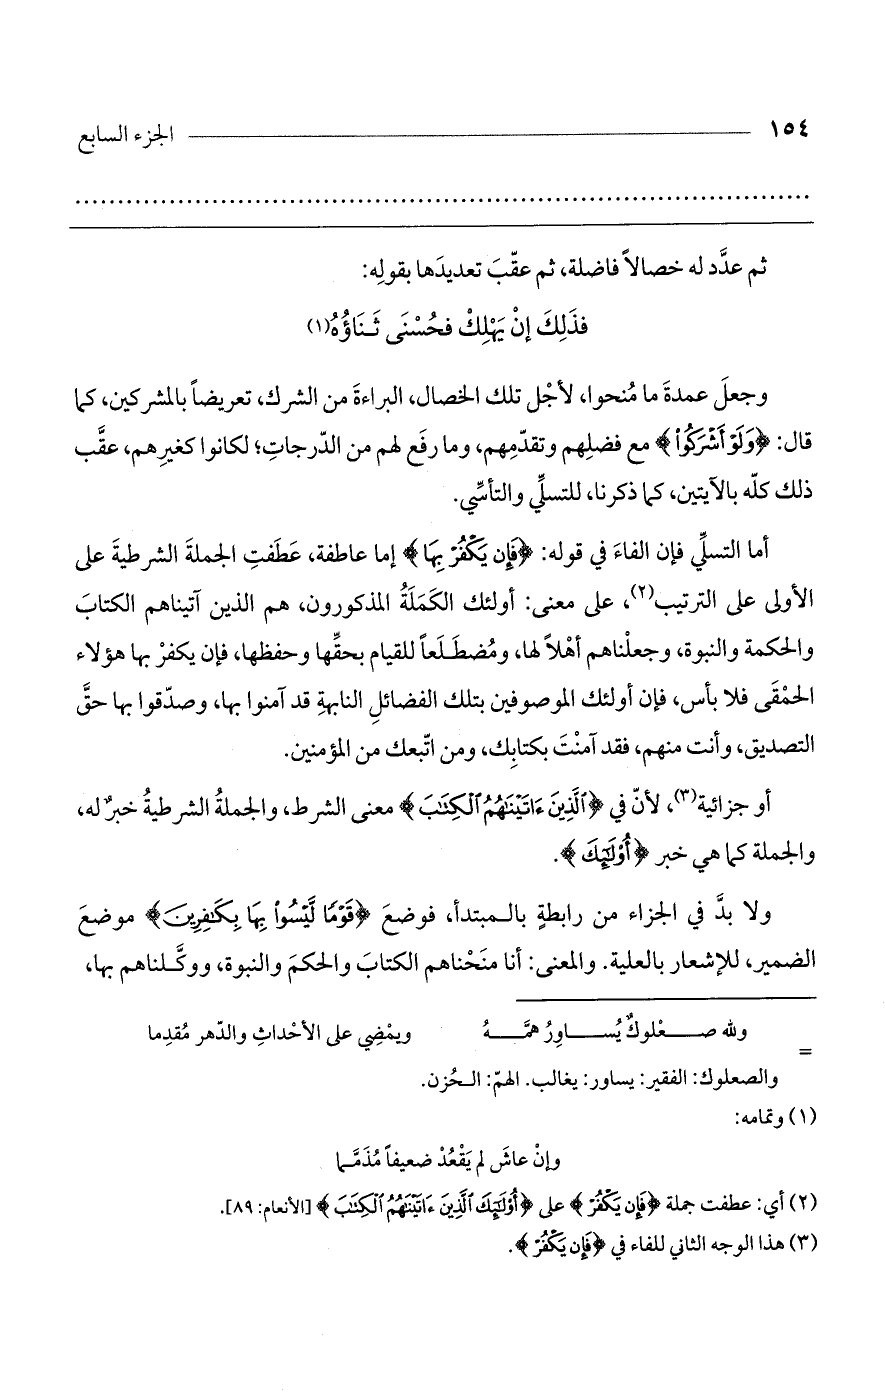 ١٥٤ الجزء السابع
ثم عدَّد له خصالاً فاضلة، ثم عقّبَ تعديدَها بقولِه:
فذَلِكَ إنْ يَهْلِكْ فحُسْنَى ثَنَاؤُهُ(١)
وجعلَ عمدةَ ما مُنحوا، لأجْل تلك الخصال، البراءةَ من الشرك، تعريضاً بالمشركين، كما
قال: ﴿وَلَوْ أَشْرَكُواْ﴾ مع فضلِهم وتقدّمِهم، وما رفَع لهم من الدّرجاتِ؛ لكانوا كغيرِهم، عقَّب
ذلك كلّه بالآيتين، كما ذكرنا، للتسلِّي والتأسِّي.
أما التسلِّي فإن الفاءَ في قوله: ﴿فَإِن يَكْفُرْ بِهَا﴾ إما عاطفة، عَطَفتِ الجملةَ الشرطيةَ على
الأولى على الترتيب(٢)، على معنى: أولئك الكَمَلَةُ المذكورون، هم الذين آتيناهم الكتابَ
والحكمة والنبوة، وجعلْناهم أهْلاً لها، ومُضطَلَعاً للقيام بحقِّها وحفظِها، فإن يكفرْ بها هؤلاء
الحمْقَى فلا بأس، فإن أولئك الموصوفين بتلك الفضائلِ النابهةِ قد آمنوا بها، وصدّقوا بها حقَّ
التصديق، وأنت منهم، فقد آمنْتَ بكتابِك، ومن اتّبعك من المؤمنين.
أو جزائية(٣)، لأنّ في ﴿ٱلَّذِينَ ءَاتَيْنَٰهُمُ ٱلْكِتَٰبَ﴾ معنى الشرط، والجملةُ الشرطيةُ خبرٌ له،
والجملة كما هي خبر ﴿أُوْلَٰٓئِكَ﴾.
ولا بدَّ في الجزاء من رابطةٍ بالمبتدأ، فوضعَ ﴿قَوْمًا لَّيْسُواْ بِهَا بِكَٰفِرِينَ﴾ موضعَ
الضمير، للإشعار بالعلية. والمعنى: أنا منَحْناهم الكتابَ والحكمَ والنبوة، ووكَّلناهم بها،
= ولله صعْلوكٌ يُساوِرُ همَّهُ ويمْضِي على الأحْداثِ والدّهر مُقدِما
والصعلوك: الفقير: يساور: يغالب. الهمّ: الحُزن.
(١) وتمامه:
وإنْ عاشَ لم يَقْعُدْ ضعيفاً مُذَمَّما
(٢) أي: عطفت جملة ﴿فَإِن يَكْفُرْ﴾ على ﴿أُوْلَٰٓئِكَ ٱلَّذِينَ ءَاتَيْنَٰهُمُ ٱلْكِتَٰبَ﴾ [الأنعام: ٨٩].
(٣) هذا الوجه الثاني للفاء في ﴿فَإِن يَكْفُرْ﴾.